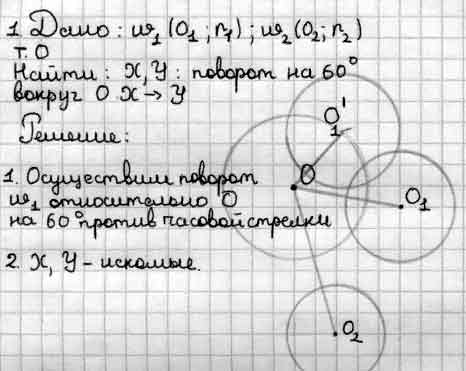 1 Дано: ω₁ (O₁; r₁); ω₂ (O₂; r₂)
т. O
Найти: X, Y: поворот на 60°
вокруг O X → Y
Решение:
1. Осуществим поворот
ω₁ относительно O
на 60° против часовой стрелки
2. X, Y - искомые.
O₁'
O
O₁
O₂